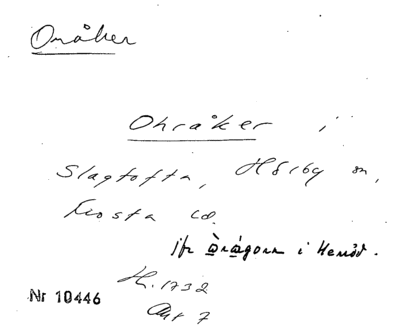 Onåker
Onråker i
Slagtofta, Hörby sn,
Frosta hd.
jfr Òrågorn i Hemöd.
H. 1732
Akt 7
Nr 10446